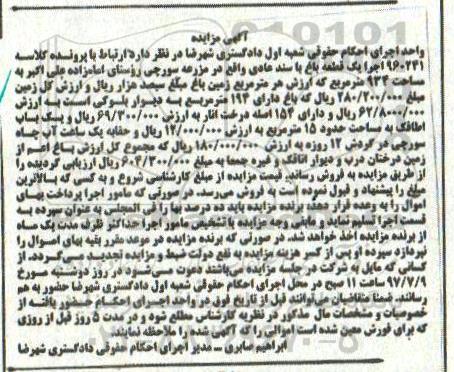 آگهی مزایده
واحد اجرای احکام حقوقی شعبه اول دادگستری شهرضا در نظر دارد ارتباط با پرونده کلاسه
۹۶۰۲۴۱ اجرا یک قطعه باغ با سند عادی واقع در مزرعه سورچی روستای امامزاده علی اکبر به
مساحت ۹۳۴ مترمربع که ارزش هر مترمربع زمین باغ مبلغ سیصد هزار ریال و ارزش کل زمین
مبلغ ۲۸۰/۲۰۰/۰۰۰ ریال که باغ دارای ۱۹۳ مترمربع به دیوار بلوکی است به ارزش
۶۲/۸۰۰/۰۰۰ ریال و دارای ۱۵۴ اصله درخت انار به ارزش ۶۹/۳۰۰/۰۰۰ ریال و یک باب
اطاقک به مساحت حدود ۱۵ مترمربع به ارزش ۱۲/۰۰۰/۰۰۰ ریال و حقابه یک ساعت آب چاه
سورچی در گردش ۱۲ روزه به ارزش ۱۸۰/۰۰۰/۰۰۰ ریال که مجموع کل ارزش باغ اعم از
زمین درختان درب و دیوار اتاقک و غیره جمعا به مبلغ ۶۰۴/۳۰۰/۰۰۰ ریال ارزیابی گردیده را
از طریق مزایده به فروش رساند. قیمت مزایده از مبلغ کارشناسی شروع و به کسی که بالاترین
مبلغ را پیشنهاد و قبول نموده است به فروش می‌رسد. در صورتی که مامور اجرا پرداخت بهای
اموال را به وعده قرار دهد برنده مزایده باید ده درصد بها را فی المجلس به عنوان سپرده به
قسمت اجرا تسلیم نماید و مابقی وجه مزایده با تشخیص مامور اجرا حداکثر ظرف مدت یک ماه
از برنده مزایده اخذ خواهد شد. در صورتی که برنده مزایده در موعد مقرر بقیه بهای اموال را
نپردازد سپرده او پس از کسر هزینه مزایده به نفع دولت ضبط و مزایده تجدید می‌گردد. از
کسانی که مایل به شرکت در جلسه مزایده می‌باشند دعوت می‌شود در روز دوشنبه مورخ
۹۷/۷/۹ ساعت ۱۱ صبح در محل اجرای احکام حقوقی شعبه اول دادگستری شهرضا حضور به هم
رسانند. ضمنا متقاضیان می‌توانند قبل از تاریخ فوق در واحد اجرای احکام حضور یافته از
خصوصیات و مشخصات مال مذکور در نظریه کارشناس مطلع شوند و در مدت ۵ روز قبل از روزی
که برای فروش معین شده است اموالی را که آگهی شده را ملاحظه نمایند.
ابراهیم صابری ــ مدیر اجرای احکام حقوقی دادگستری شهرضا